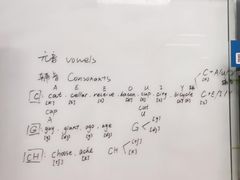 元音 vowels
辅音 Consonants
A E E O U I Y
[C]: cat. cellar. receive. bacon. cup. city. bicycle
[k] [s] [s] [k] [k] [s]
cap cut
A U
[G]: guy, giant, ago, age
[g] [dʒ] [g] [dʒ]
G [g] [dʒ]
[CH]: choose, ache
[tʃ] [k]
CH [tʃ] [k]